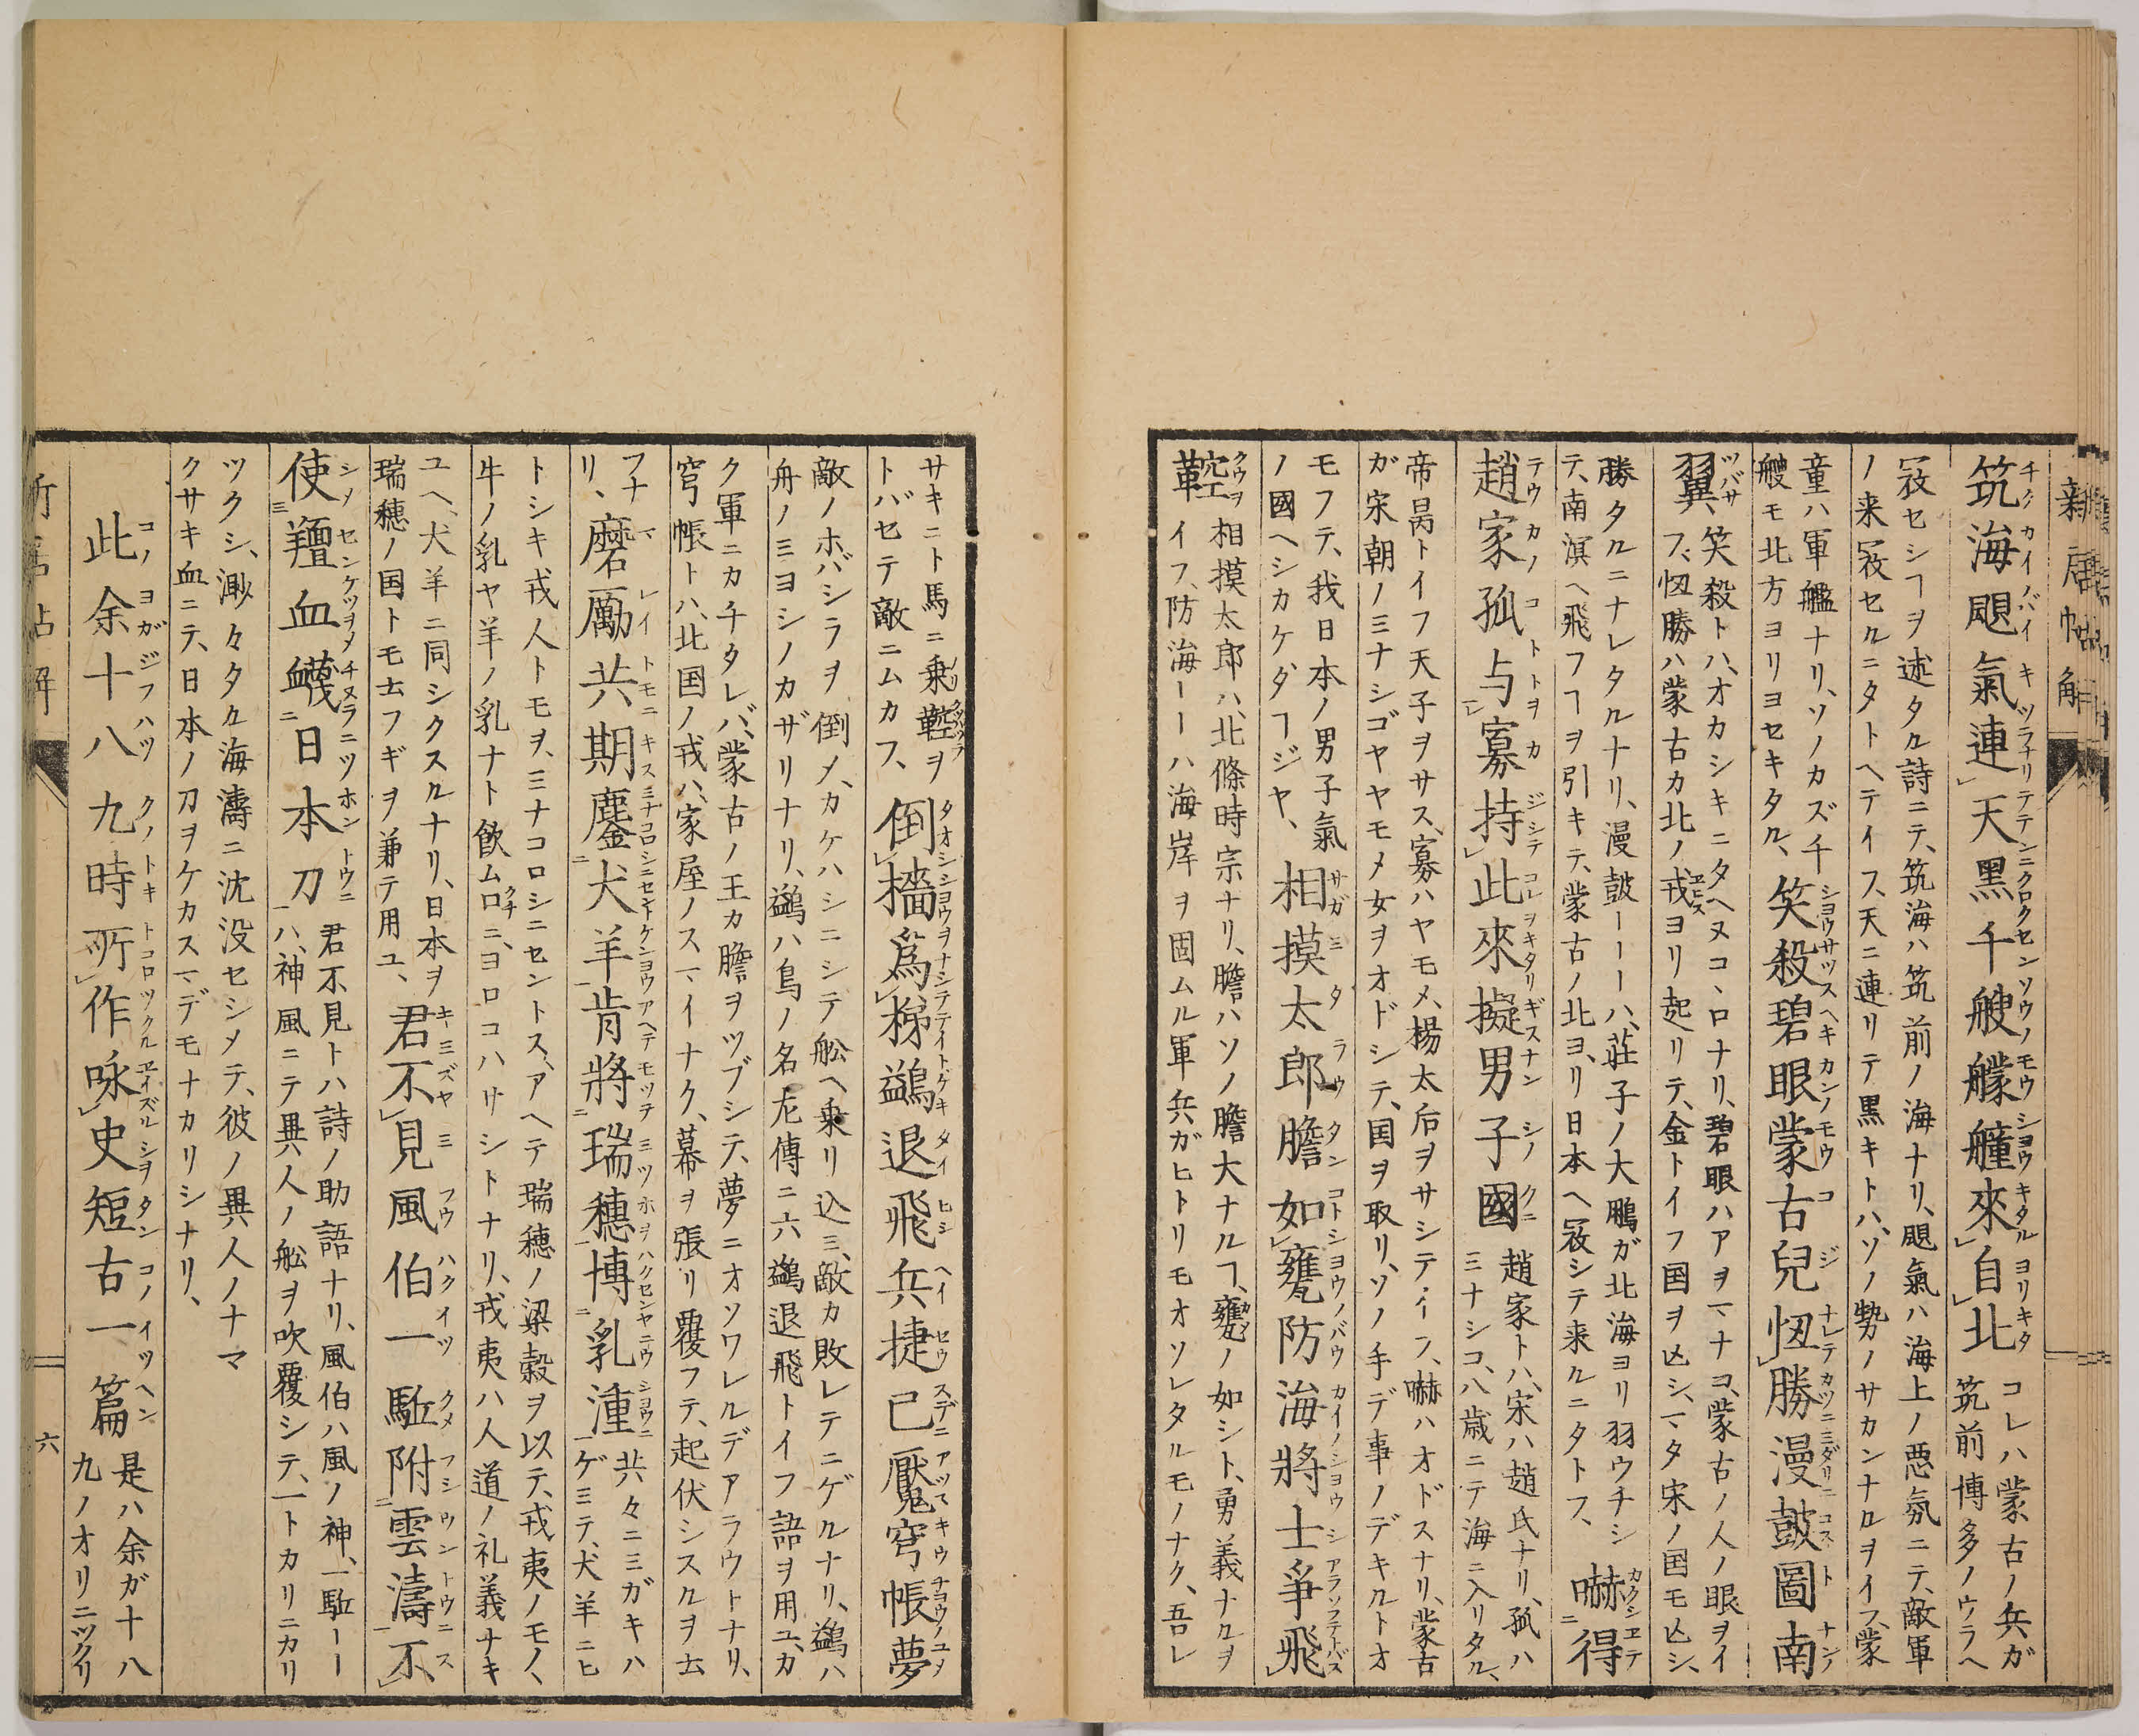 新居帖解
筑海颶氣連天黒千艘艨艟來自北
コレハ蒙古ノ兵ガ
筑前博多ノウラヘ
寇セシヿヲ述タル詩ニテ、筑海ハ筑前ノ海ナリ、颶氣ハ海上ノ悪氛ニテ、敵軍
ノ来寇セルニタトヘテイフ、天ニ連リテ黒キトハ、ソノ勢ノサカンナルヲイフ、蒙
童ハ軍艦ナリ、ソノカズ千
艘モ北方ヨリヨセキタル、
笑殺碧眼蒙古兒忸勝漫鼓圖南
翼、
笑殺トハ、オカシキニタヘヌコヽロナリ、碧眼ハアヲマナコ、蒙古ノ人ノ眼ヲイ
フ、忸勝ハ蒙古カ北ノ戎ヨリ起リテ、金トイフ国ヲ亡シ、マタ宋ノ国モ亡シ、
勝タルニナレタルナリ、漫鼓ーーーハ、荘子ノ大鵬ガ北海ヨリ羽ウチシ
テ、南溟ヘ飛フヿヲ引キテ、蒙古ノ北ヨリ日本ヘ寇シテ来ルニタトフ、
嚇得
趙家孤与寡持此來擬男子國
趙家トハ、宋ハ趙氏ナリ、孤ハ
ミナシコ、八歳ニテ海ニ入リタル、
帝昺トイフ天子ヲサス、寡ハヤモメ、楊太后ヲサシテイフ、嚇ハオドスナリ、蒙古
ガ宋朝ノミナシゴヤヤモメ女ヲオドシテ、国ヲ取リ、ソノ手デ事ノデキルトオ
モフテ、我日本ノ男子氣
ノ國ヘシカケダヿジヤ、
相摸太郎膽如甕防海將士爭飛
鞚
相摸太郎ハ、北條時宗ナリ、膽ハソノ膽大ナルヿ、甕ノ如シト、勇義ナルヲ
イフ、防海ーーハ海岸ヲ固ムル軍兵ガヒトリモオソレタルモノナク、吾レ
サキニト馬ニ乗鞚ヲ
トバセテ敵ニムカフ、
倒檣爲梯鷁退飛兵捷已魘穹帳夢
敵ノホバシラヲ倒メ、カケハシニシテ舩ヘ乗リ込ミ、敵カ敗レテニゲルナリ、鷁ハ
舟ノミヨシノカザリナリ、鷁ハ鳥ノ名左傳ニ六鷁退飛トイフ語ヲ用ユ、カ
ク軍ニカチタレバ、蒙古ノ王カ膽ヲツブシテ、夢ニオソワレルデアラウトナリ、
穹帳トハ、北国ノ戎ハ、家屋ノスマイナク、幕ヲ張リ覆フテ、起伏シスルヲ云
フナ
リ、
磨厲共期鏖犬羊肯將瑞穂博乳湩
共々ニミガキハ
ゲミテ、犬羊ニヒ
トシキ戎人トモヲ、ミナコロシニセントス、アヘテ瑞穂ノ梁穀ヲ以テ、戎夷ノモノヽ
牛ノ乳ヤ羊ノ乳ナト飲ム口ニ、ヨロコハサシトナリ、戎夷ハ人道ノ礼義ナキ
ユヘ、犬羊ニ同シクスルナリ、日本ヲ
瑞穂ノ国トモ云フギヲ兼テ用ユ、
君不見風伯一駈附雲濤不
使羶血衊日本刀
君不見トハ詩ノ助語ナリ、風伯ハ風ノ神、一駈ーー
ハ、神風ニテ異人ノ舩ヲ吹覆シテ、一トカリニカリ
ツクシ、渺々タル海濤ニ沈没セシメテ、彼ノ異人ノナマ
クサキ血ニテ、日本ノ刀ヲケカスマデモナカリシナリ、
此余十八九時所作咏史短古一篇
是ハ余ガ十八
九ノオリニツクリ
六